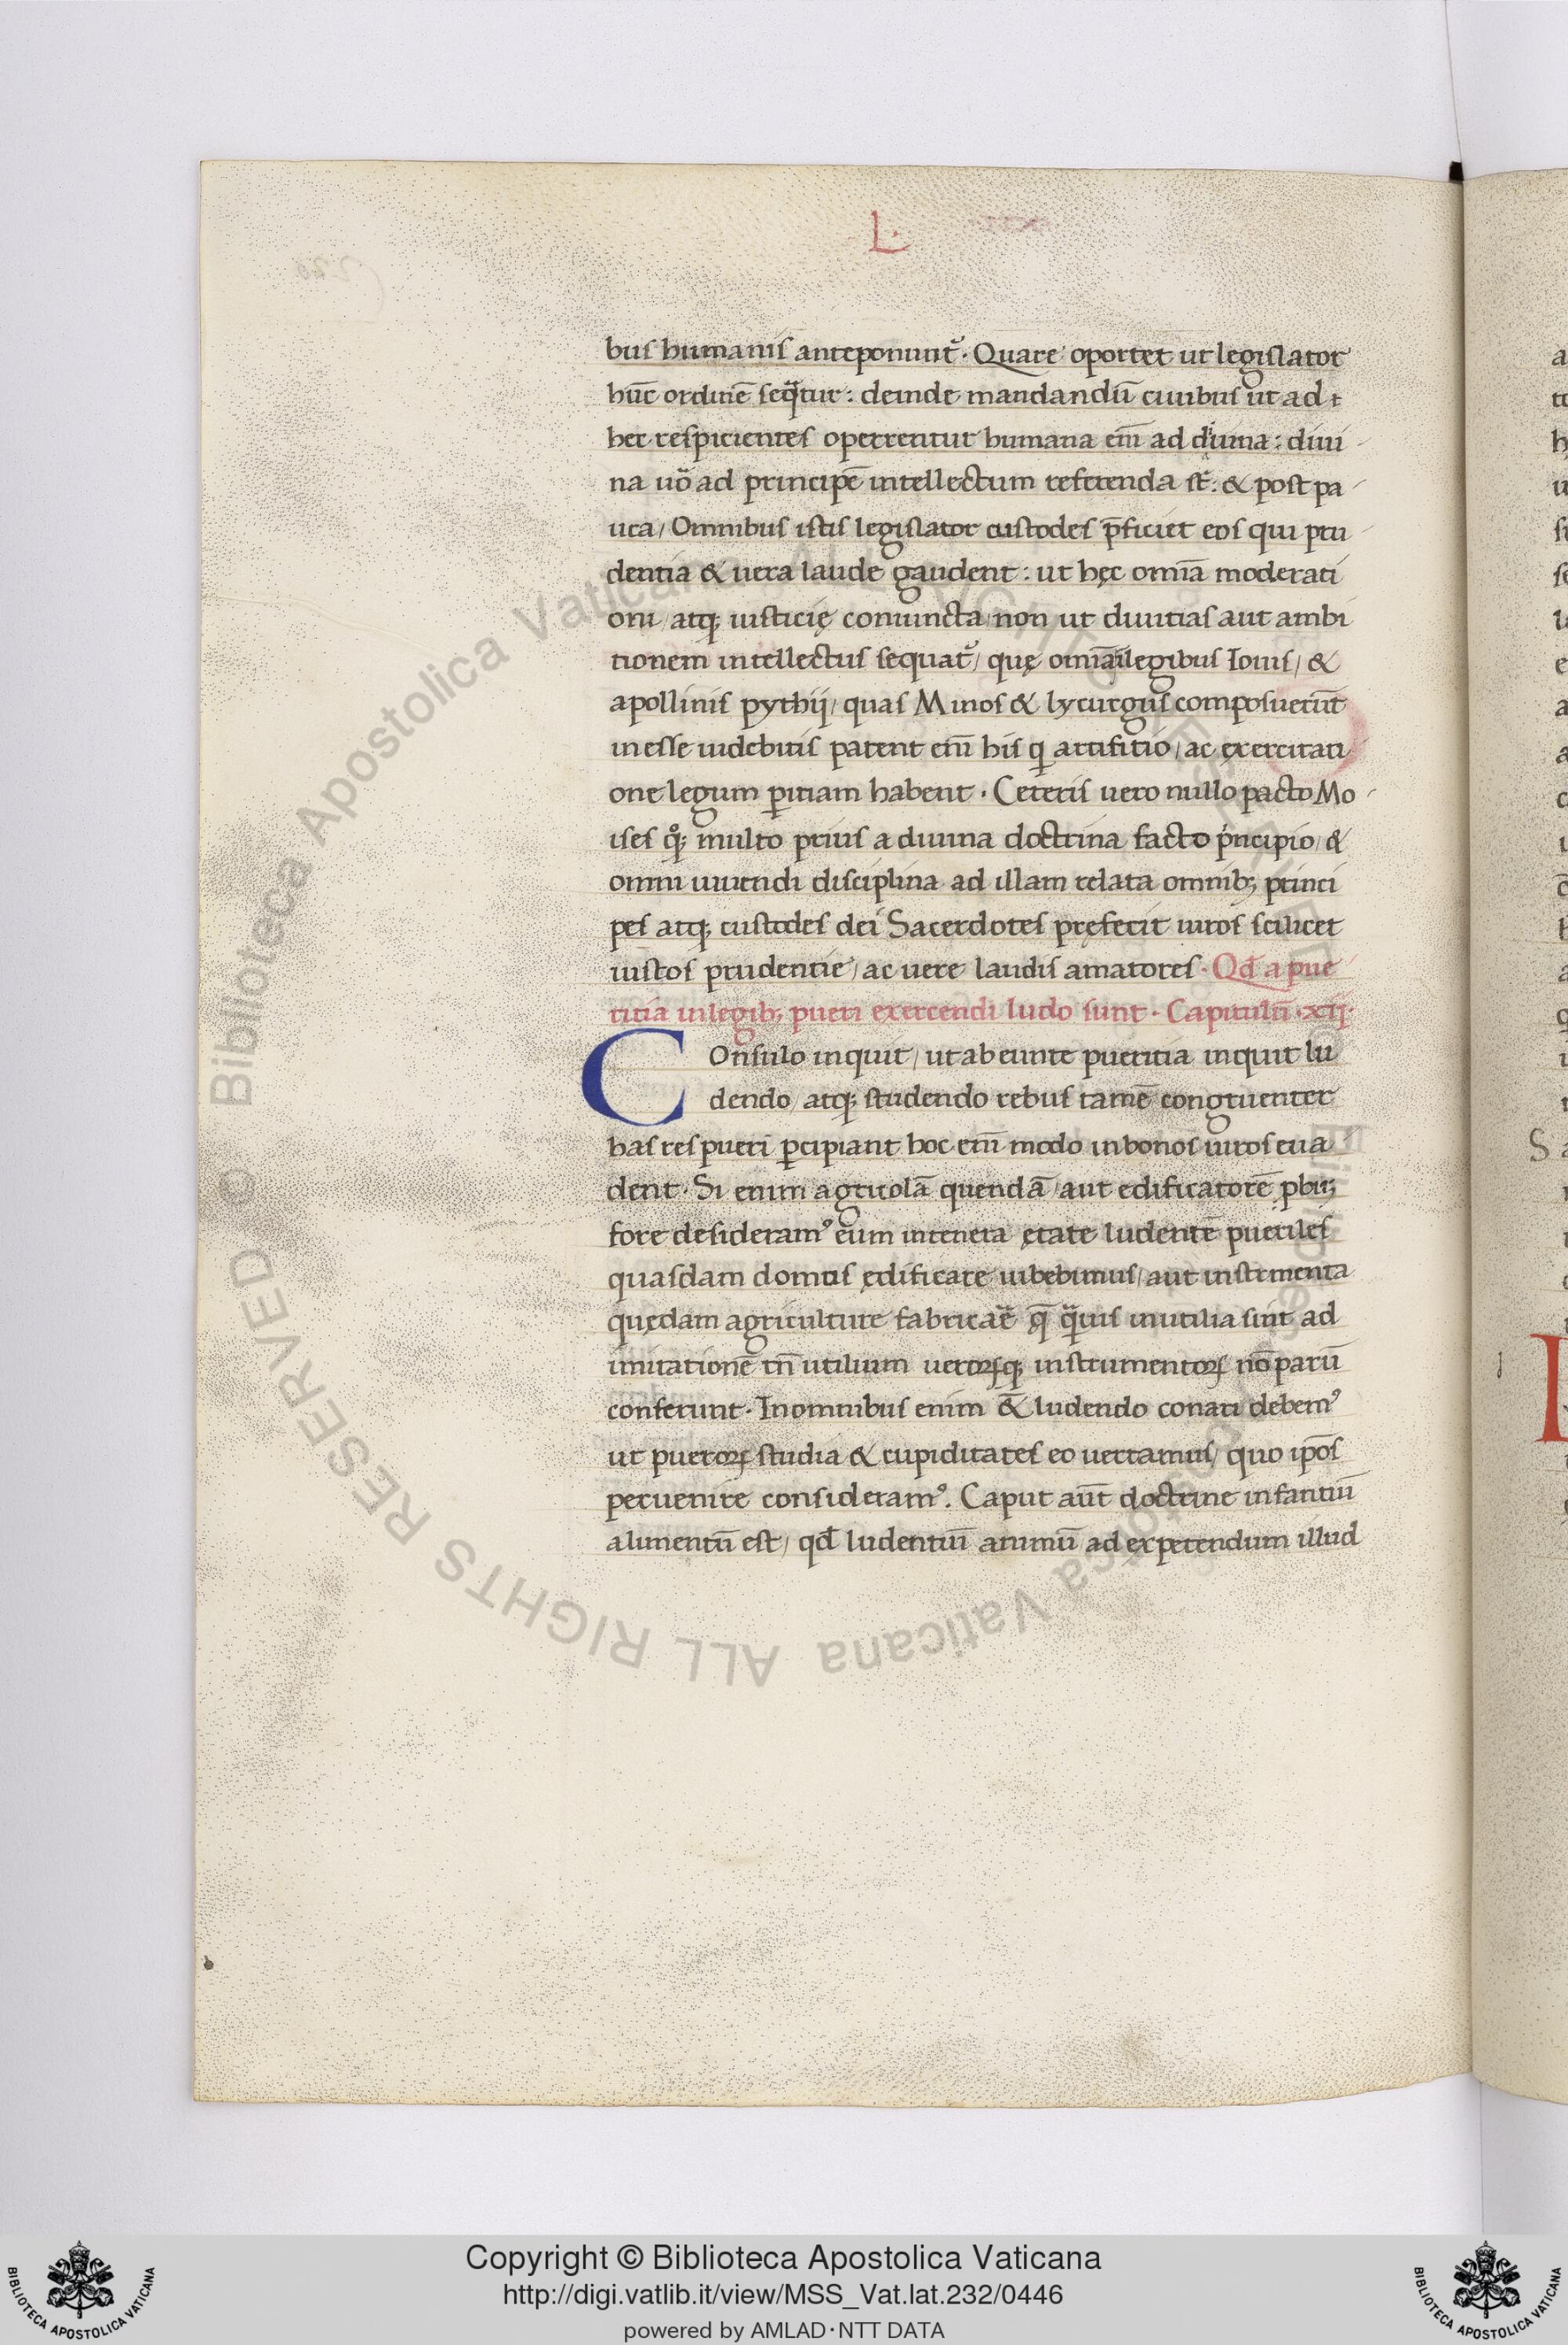 L.
bus humanis anteponunt᷑. Quare oportet ut legislator
hūc ordinē seq̄tur: deinde mandandū ciuibus ut ad
hec respicientes operentur humana eni̅ ad diuina: diui
na uo̅ ad principē intellectum referenda st̄. & post pa
uca/ Omnibus istis legislator custodes p̄ficiet eos qui pru
dentia & uera laude gaudent: ut hęc omīa moderati
oni/ atq; iusticię coniuncta/ non ut diuitias aut ambi
tionem intellectus sequat᷑/ quę omīa ī legibus Iouis/ &
apollinis pythij/ quas Minos & lycurgus composuerūt
inesse uidebitis patent eni̅ his q artifitio/ ac exercitati
one legum ꝑitiam habent. Ceteris uero nullo pacto Mo
ises qͦq; multo prius a diuina doctrina facto p̍ncipio/ &
omni uiuendi disciplina ad illam relata omnib; princi
pes atq; custodes dei Sacerdotes pręfecit uiros scilicet
iustos prudentie/ ac uere laudis amatores. Qđ a pue
ritia in legib; pueri exercendi ludo sunt. Capitulū .xij.
COnsulo inquit/ ut ab eunte pueritia inquit lu
dendo/ atq; studendo rebus tamē congruenter
has res pueri ꝑcipiant hoc eni̅ modo in bonos uiros eua
dent. Si enim agricolā quendā/ aut edificatorē ꝓbū
fore desideramꝰ eum in tenera ętate ludentē pueriles
quasdam domus ędificare uibebimus/ aut instrumenta
quędam agriculture fabricar̄e q̄ q̄uis inutilia sint ad
imitationē tn̄ utilium ueroꝝq; instrumentoꝝ nō parū
conferunt. In omnibus enim & ludendo conari debemꝰ
ut pueroꝝ studia & cupiditates eo uertamus/ quo ip̄os
peruenire consideramꝰ. Caput aūt doctrine infantiū
alimentū est/ qđ ludentiū animū/ ad expetendum illud
© Biblioteca Apostolica Vaticana ALL RIGHTS RESERVED
Copyright © Biblioteca Apostolica Vaticana
http://digi.vatlib.it/view/MSS_Vat.lat.232/0446
powered by AMLAD·NTT DATA
BIBLIOTECA APOSTOLICA VATICANA
BIBLIOTECA APOSTOLICA VATICANA